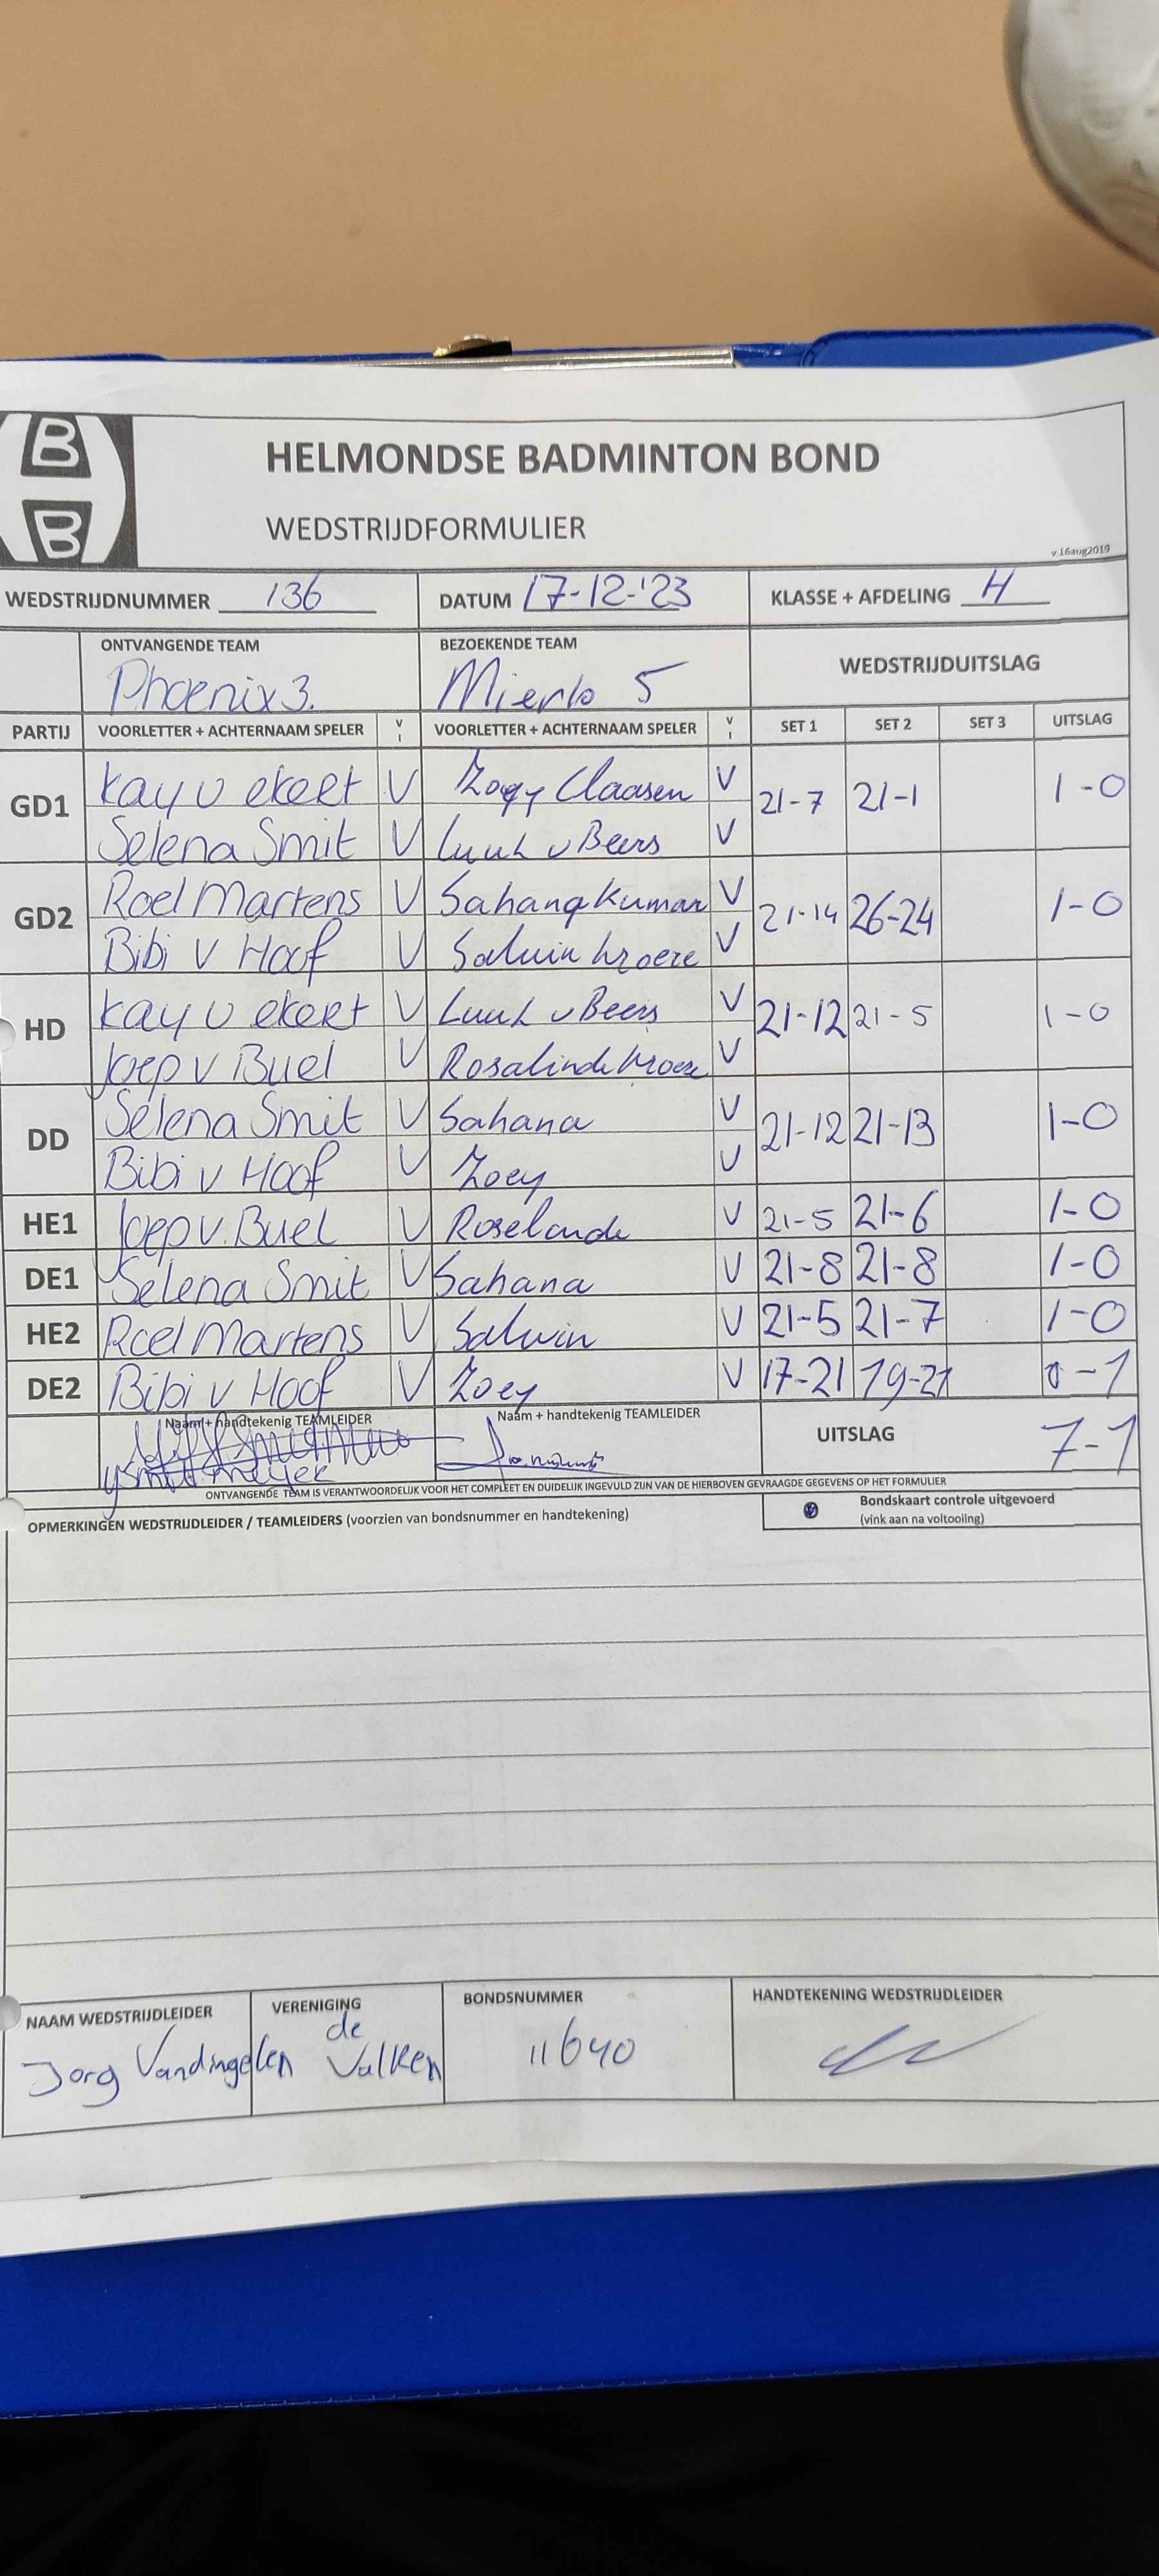 B
B
HELMONDSE BADMINTON BOND
WEDSTRIJDFORMULIER
v.16aug2019
WEDSTRIJDNUMMER 136 DATUM 17-12-'23 KLASSE + AFDELING H
ONTVANGENDE TEAM BEZOEKENDE TEAM WEDSTRIJDUITSLAG
Phoenix 3. Mierlo 5
PARTIJ VOORLETTER + ACHTERNAAM SPELER V I VOORLETTER + ACHTERNAAM SPELER V I SET 1 SET 2 SET 3 UITSLAG
GD1 Kay v ekert V Zoey Claasen V 21-7 21-1 1-0
Selena Smit V Luuk v Beers V
GD2 Roel Martens V Sahana Kumar V 21-14 26-24 1-0
Bibi v Hoof V Saluin kroeze V
HD Kay v ekert V Luuk v Beers V 21-12 21-5 1-0
Joep v Buel V Rosalinde kroeze V
DD Selena Smit V Sahana V 21-12 21-13 1-0
Bibi v Hoof V Zoey V
HE1 Joep v. Buel V Roselande V 21-5 21-6 1-0
DE1 Selena Smit V Sahana V 21-8 21-8 1-0
HE2 Roel Martens V Saluin V 21-5 21-7 1-0
DE2 Bibi v Hoof V Zoey V 17-21 19-21 0-1
Naam + handtekenig TEAMLEIDER Naam + handtekenig TEAMLEIDER UITSLAG 7-1
ONTVANGENDE TEAM IS VERANTWOORDELIJK VOOR HET COMPLEET EN DUIDELIJK INGEVULD ZIJN VAN DE HIERBOVEN GEVRAAGDE GEGEVENS OP HET FORMULIER
OPMERKINGEN WEDSTRIJDLEIDER / TEAMLEIDERS (voorzien van bondsnummer en handtekening) Bondskaart controle uitgevoerd
(vink aan na voltooiing)
NAAM WEDSTRIJDLEIDER VERENIGING BONDSNUMMER HANDTEKENING WEDSTRIJDLEIDER
Jorg Vandingelen de Valken 11640